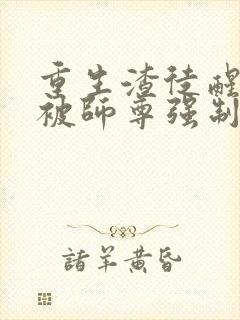 重生渣徒醒
被师尊强制
诸羊黄昏